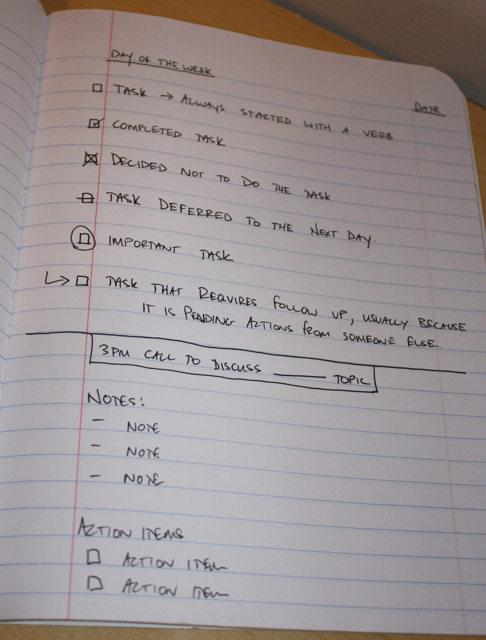 DAY OF THE WEEK
DATE
☐ TASK → ALWAYS STARTED WITH A VERB
☑ COMPLETED TASK
☒ DECIDED NOT TO DO THE TASK
TASK DEFERRED TO THE NEXT DAY.
IMPORTANT TASK
↳ ☐ TASK THAT REQUIRES FOLLOW UP, USUALLY BECAUSE
IT IS PENDING ACTIONS FROM SOMEONE ELSE.
3PM CALL TO DISCUSS ______ TOPIC
NOTES:
- NOTE
- NOTE
- NOTE
ACTION ITEMS
☐ ACTION ITEM
☐ ACTION ITEM